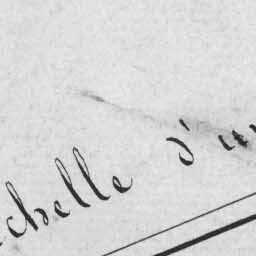 echelle d'un